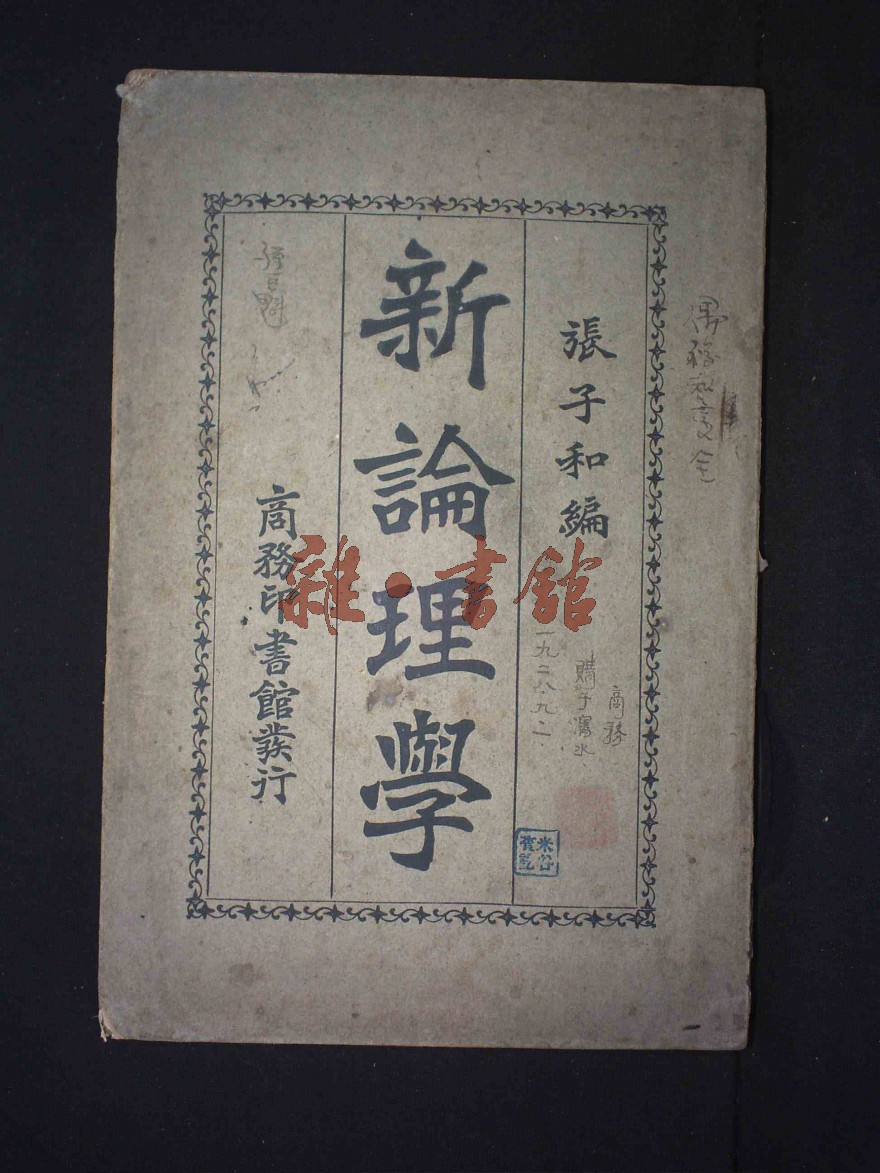 張子和編
新論理學
商務印書館發行
商務
購于瀋水
一九二八九二
雜·書館